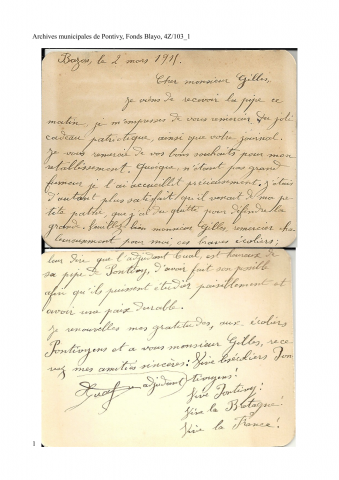 Archives municipales de Pontivy, Fonds Blayo, 4Z/103_1
Bazas, le 2 mars 1915.
Cher monsieur Gilles,
Je viens de recevoir la pipe ce
matin, je m'empresse de vous remercier du joli
cadeau patriotique, ainsi que votre journal.
Je vous remercie de vos bons souhaits pour mon
rétablissement. Quoique, n'étant pas grand
fumeur je l'ai accueillit précieusement. J'étais
d'autant plus satisfait qu'il venait de ma pe
tite patrie, que j'ai du quitté pour défendre la
grande. Veuillez, bien monsieur Gilles, remercier cha
leureusement pour moi ces braves écoliers;
leur dire que l'adjudant Cual, est heureux de
sa pipe de Pontivy, d'avoir fait son possible
afin qu'ils puissent étudier paisiblement et
avoir une paix durable.
Je renouvelles mes gratitudes, aux écoliers
Pontivyens et a vous monsieur Gilles, rece
vez mes amitiés sincères! Vive les écoliers Pon
Cual adjudant tivyens!
Vive Pontivy!
Vive la Bretagne!
Vive la France!
1